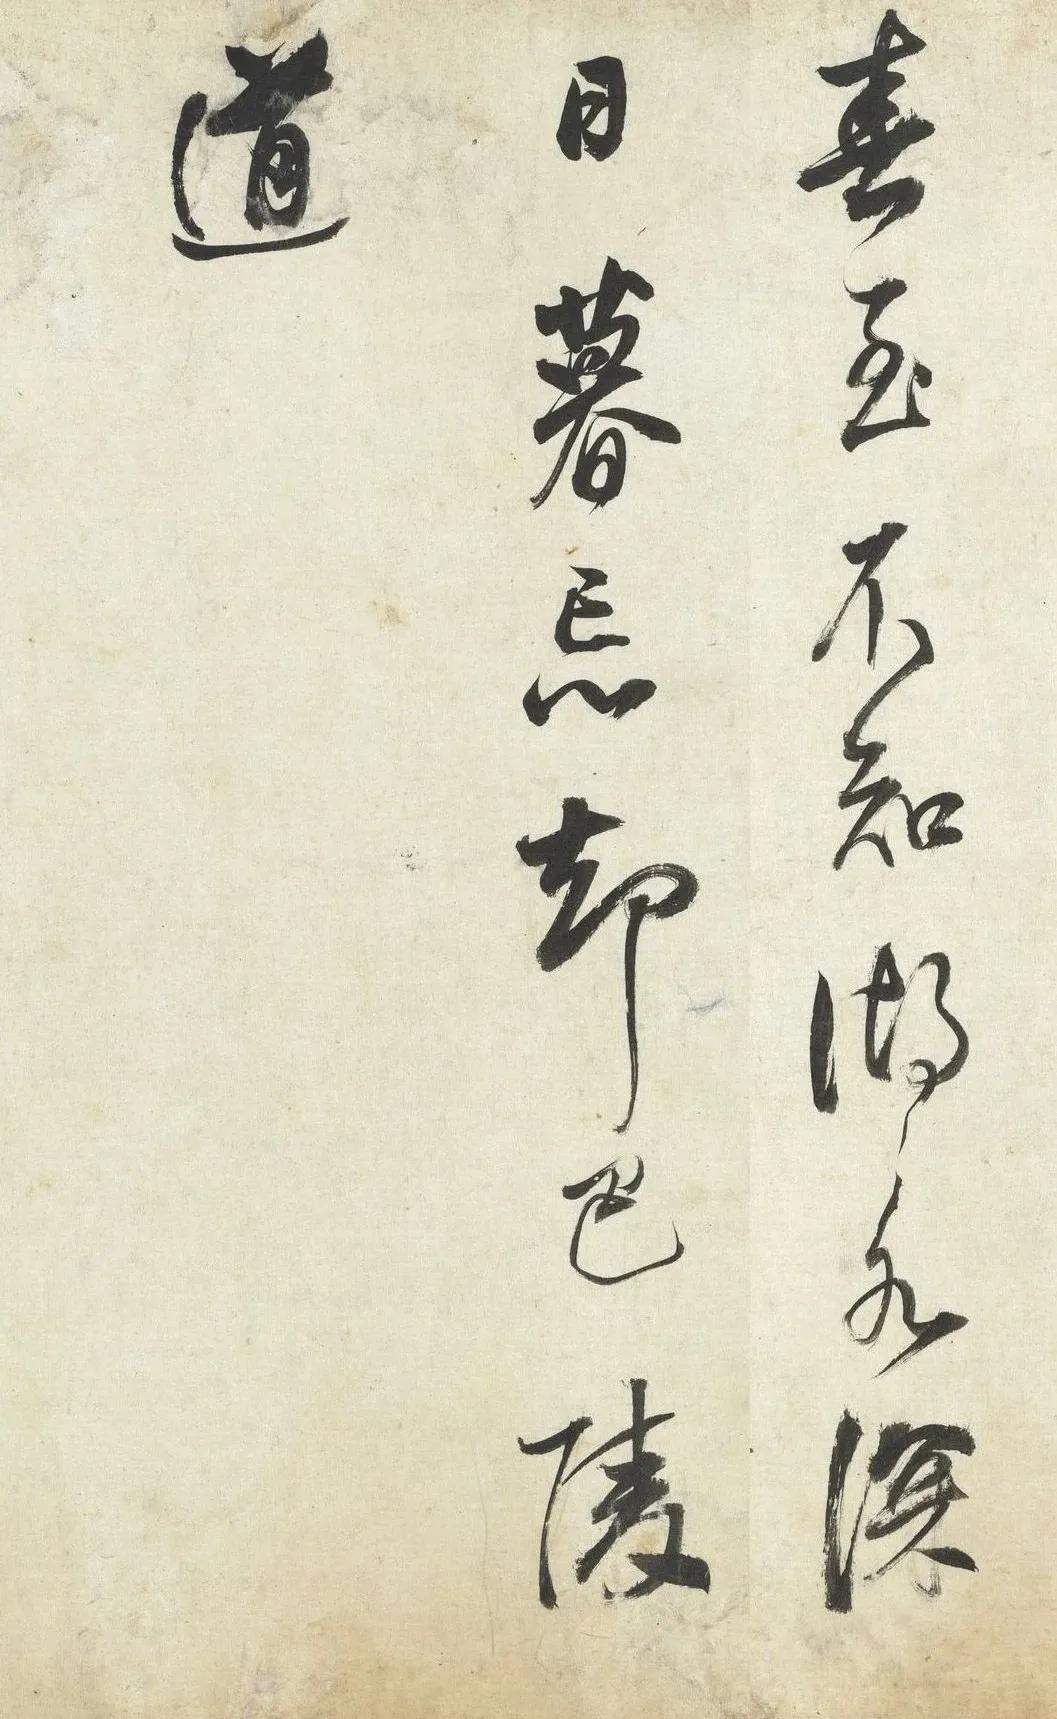 春至不知湖水深
日暮忘却巴陵
道